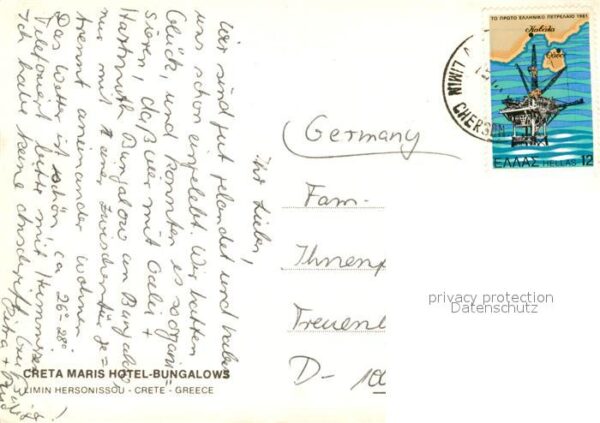 Ihr Lieben,
wir sind gut gelandet und haben
uns schon eingelebt. Wir hatten
Glück, und konnten es sogar
daß wir mit
Bungalow an Bungalow,
nur mit einer Zwischentür ge=
trennt aneinander wohnen.
Das Wetter ist schön, ca 26°-28°.
Telefoniert bitte mit
Ich habe keine Anschrift
Petra +
CRETA MARIS HOTEL-BUNGALOWS
LIMIN HERSONISSOU - CRETE - GREECE
ΤΟ ΠΡΩΤΟ ΕΛΛΗΝΙΚΟ ΠΕΤΡΕΛΑΙΟ 1981
Καβάλα
Θάσος
ΕΛΛΑΣ HELLAS 12
LIMIN CHERSON
Germany
Fam-
Ihnenp
Treuenb
D-100
privacy protection
Datenschutz